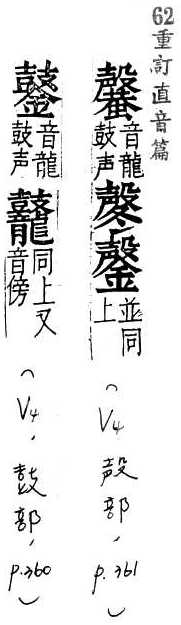 62重訂直音篇
音龍鼓声
並同上
(V4, 殸部, p.361)
音龍鼓声
同上又音傍
(V4, 鼓部, p.360)